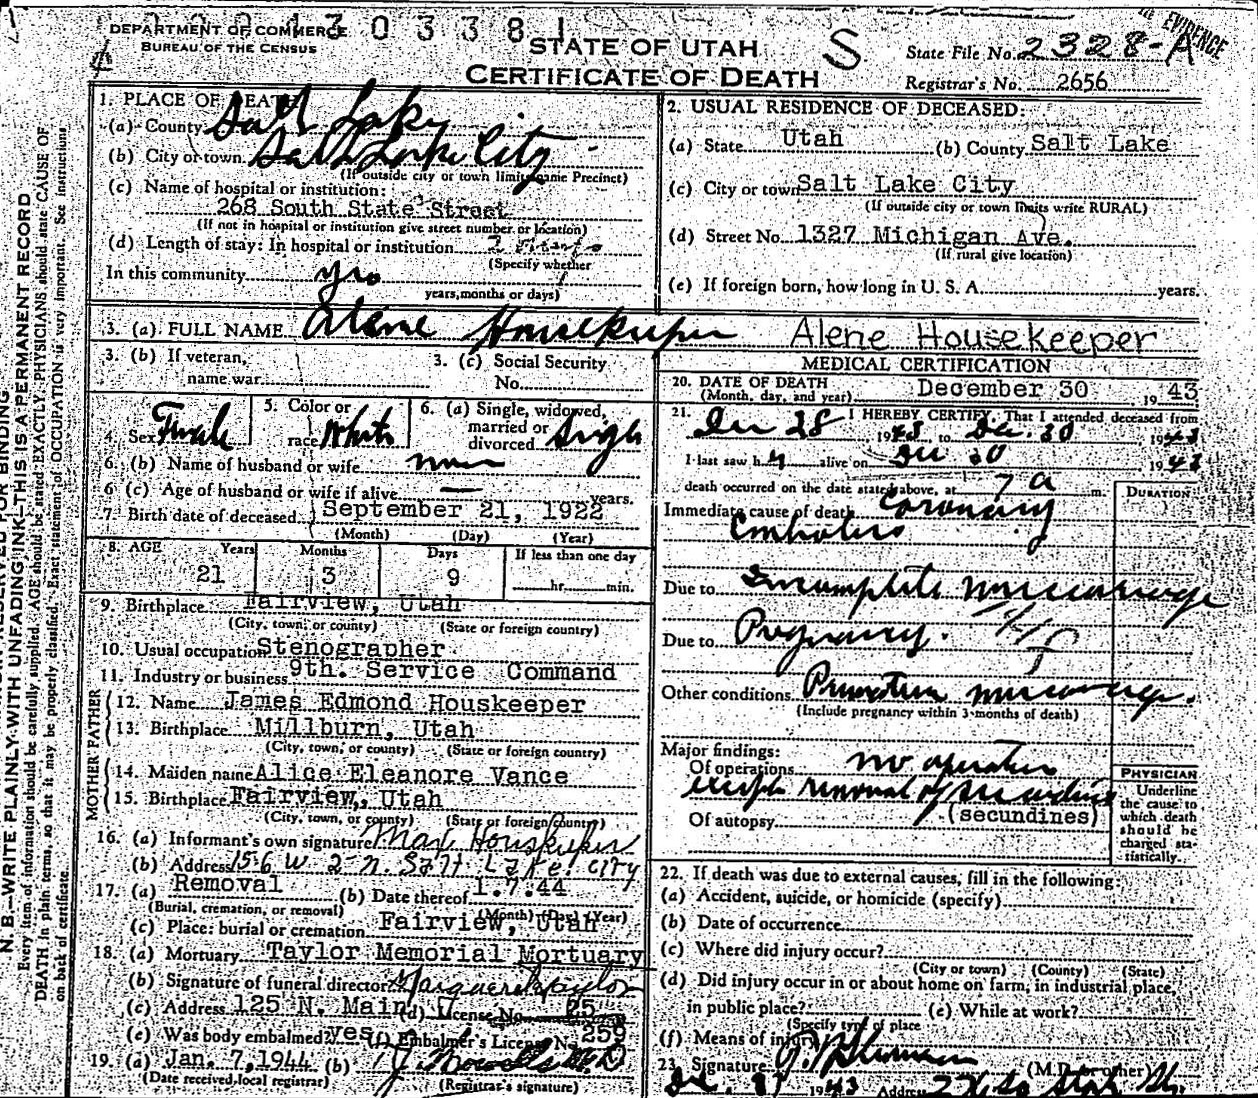 DEPARTMENT OF COMMERCE
BUREAU OF THE CENSUS
STATE OF UTAH
CERTIFICATE OF DEATH
S
IN EVIDENCE
State File No. 2328-A
Registrar's No. 2656
N. B.—WRITE PLAINLY WITH UNFADING INK—THIS IS A PERMANENT RECORD
Every item of information should be carefully supplied. AGE should be stated EXACTLY. PHYSICIANS should state CAUSE OF
DEATH in plain terms, so that it may be properly classified. Exact statement of OCCUPATION is very important. See instructions
on back of certificate.
1. PLACE OF DEATH
(a) County Salt Lake
(b) City or town Salt Lake City
(If outside city or town limits name Precinct)
(c) Name of hospital or institution:
268 South State Street
(If not in hospital or institution give street number or location)
(d) Length of stay: In hospital or institution
(Specify whether
In this community yrs
years, months or days)
2. USUAL RESIDENCE OF DECEASED:
(a) State Utah (b) County Salt Lake
(c) City or town Salt Lake City
(If outside city or town limits write RURAL)
(d) Street No. 1327 Michigan Ave.
(If rural give location)
(e) If foreign born, how long in U. S. A. years.
3. (a) FULL NAME Alene Housekeeper Alene Housekeeper
3. (b) If veteran,
name war
3. (c) Social Security
No.
4. Sex Female
5. Color or
race White
6. (a) Single, widowed,
married or
divorced Single
6. (b) Name of husband or wife none
6 (c) Age of husband or wife if alive — years.
7. Birth date of deceased September 21, 1922
(Month) (Day) (Year)
8. AGE Years Months Days If less than one day
21 3 9 hr. min.
9. Birthplace Fairview, Utah
(City, town, or county) (State or foreign country)
10. Usual occupation Stenographer
11. Industry or business 9th. Service Command
FATHER
12. Name James Edmond Houskeeper
13. Birthplace Millburn, Utah
(City, town, or county) (State or foreign country)
MOTHER
14. Maiden name Alice Eleanore Vance
15. Birthplace Fairview, Utah
(City, town, or county) (State or foreign country)
16. (a) Informant's own signature Max Houskeeper
(b) Address 156 W 2-N. Salt Lake City
17. (a) Removal (b) Date thereof 1.7.44
(Burial, cremation, or removal) (Month) (Day) (Year)
(c) Place: burial or cremation Fairview, Utah
18. (a) Mortuary Taylor Memorial Mortuary
(b) Signature of funeral director
(c) Address 125 N. Main (d) License No. 25
(e) Was body embalmed? yes (f) Embalmer's License No. 259
19. (a) Jan. 7, 1944 (b)
(Date received local registrar) (Registrar's signature)
MEDICAL CERTIFICATION
20. DATE OF DEATH December 30 1943
(Month, day, and year)
21. I HEREBY CERTIFY, That I attended deceased from
Dec 28 1943 to Dec. 30 1943
I last saw her alive on Dec 30 1943
death occurred on the date stated above, at 7 a m.
DURATION
Immediate cause of death Coronary
Embolism
Due to Incomplete miscarriage
Due to Pregnancy.
Other conditions Premature miscarriage.
(Include pregnancy within 3 months of death)
Major findings:
Of operations no operation
except removal of secundines
(secundines)
Of autopsy
PHYSICIAN
Underline
the cause to
which death
should be
charged sta-
tistically.
22. If death was due to external causes, fill in the following:
(a) Accident, suicide, or homicide (specify)
(b) Date of occurrence
(c) Where did injury occur?
(City or town) (County) (State)
(d) Did injury occur in or about home on farm, in industrial place,
in public place? (e) While at work?
(Specify type of place
(f) Means of injury
23. Signature (M.D. or other)
1943 Address